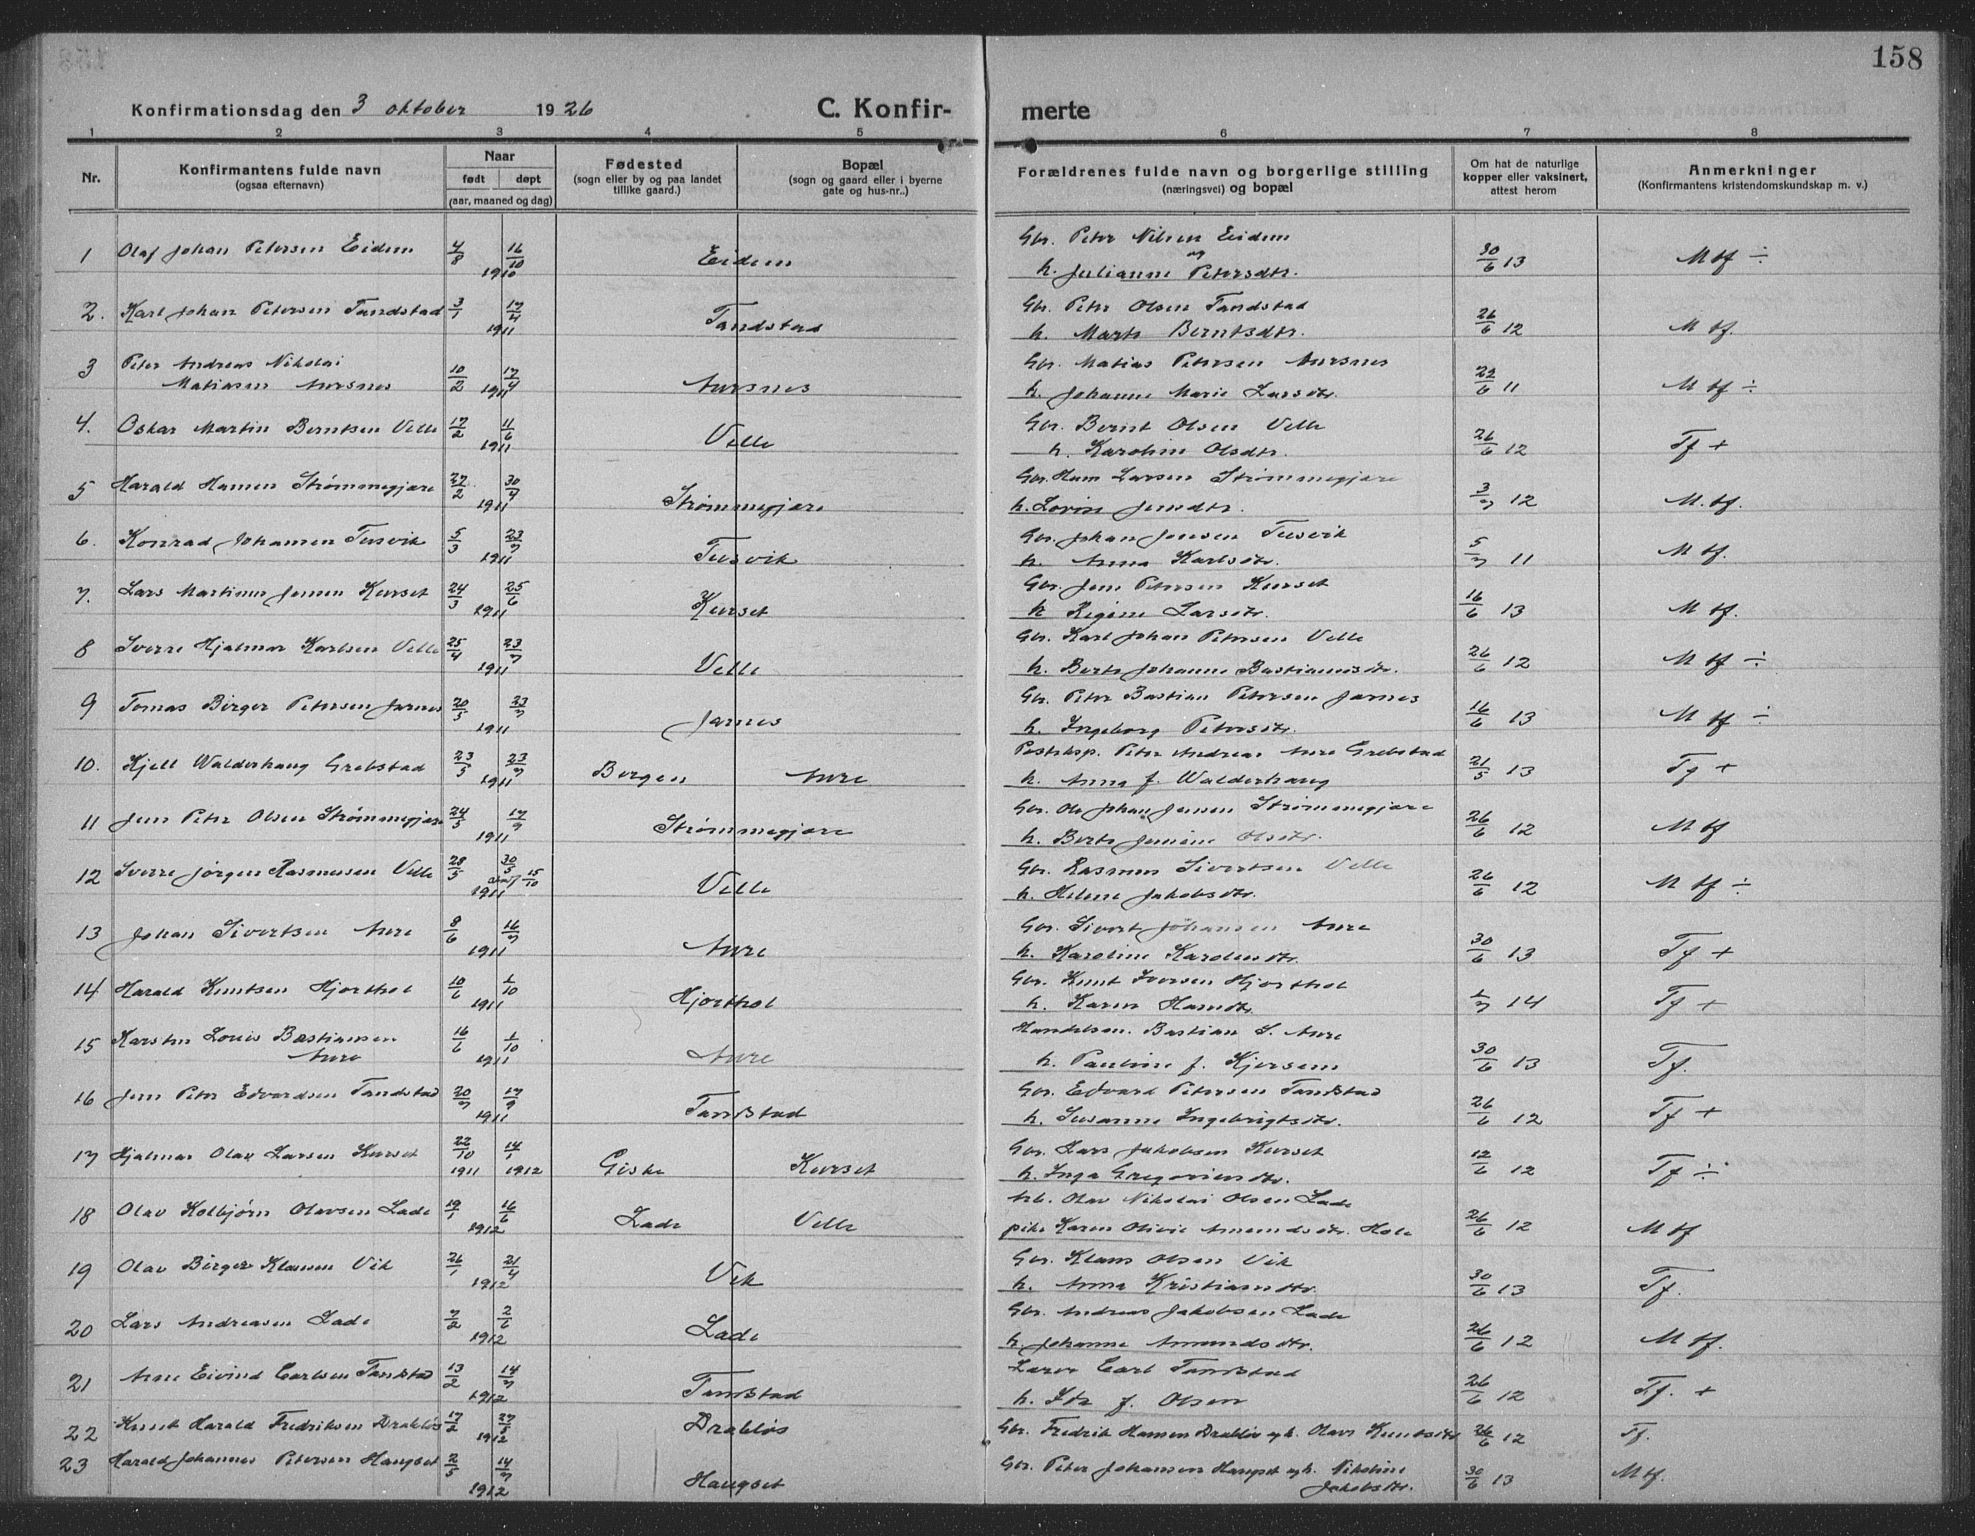 158
Konfirmationsdag den 3 oktober 1926 C. Konfir-merte
1 2 3 4 5 6 7 8
Nr.
Konfirmantens fulde navn
(ogsaa efternavn)
Naar
født døpt
(aar, maaned og dag)
Fødested
(sogn eller by og paa landet
tillike gaard.)
Bopæl
(sogn og gaard eller i byerne
gate og hus-nr..)
Forældrenes fulde navn og borgerlige stilling
(næringsvei) og bopæl
Om hat de naturlige
kopper eller vaksinert,
attest herom
Anmerkninger
(Konfirmantens kristendomskundskap m. v.)
1 Olaf Johan Petersen Eidem 4/8 16/10 1910 Eidem Gbr. Peter Nilsen Eidem
og h. Julianne Petersdtr. 30/6 13 M tf ÷
2. Karl Johan Petersen Tandstad 3/1 17/4 1911 Tandstad Gbr. Peter Olsen Tandstad
h. Marte Berntsdtr. 26/6 12 M tf.
3 Peter Andreas Nikolai
Matiasen Aursnes 10/2 17/4 1911 Aursnes Gbr. Matias Petersen Aursnes
h. Johanne Marie Larsdtr. 22/6 11 M tf ÷
4. Oskar Martin Berntsen Velle 17/2 11/6 1911 Velle Gbr. Bernt Olsen Velle
h. Karoline Olsdtr. 26/6 12 Tf +
5 Harald Hansen Strømmegjære 27/2 30/4 1911 Strømmegjære Gbr. Hans Larsen Strømmegjære
h. Lovise Jensdtr. 3/7 12 M. tf.
6. Konrad Johansen Tusvik 5/3 23/7 1911 Tusvik Gbr. Johan Jensen Tusvik
h. Anna Karlsdtr. 5/7 11 M tf.
7. Lars Martinus Jensen Kurset 24/3 25/6 1911 Kurset Gbr. Jens Petersen Kurset
h. Regine Larsdtr. 16/6 13 M tf.
8 Sverre Hjalmar Karlsen Velle 25/4 23/7 1911 Velle Gbr. Karl Johan Petersen Velle
h. Berte Johanne Bastiansdtr. 26/6 12 M tf ÷
9 Tomas Birger Petersen Jarnes 20/5 23/7 1911 Jarnes Gbr. Peter Bastian Petersen Jarnes
h. Ingeborg Petersdtr. 16/6 13 M tf ÷
10. Kjell Walderhaug Grebstad 23/5 23/7 1911 Bergen Aure Posteksp. Peter Andreas Aure Grebstad
h. Anna f. Walderhaug 21/5 13 Tf +
11 Jens Peter Olsen Strømmegjære 24/5 17/9 1911 Strømmegjære Gbr. Ole Johan Jensen Strømmegjære
h. Berte Jensine Olsdtr. 26/6 12 M tf
12 Sverre Jørgen Rasmussen Velle 28/5 30/5 15/10 1911 Velle Gbr. Rasmus Sivertsen Velle
h. Heline Jakobsdtr. 26/6 12 M tf ÷
13 Johan Sivertsen Aure 8/6 16/7 1911 Aure Gbr. Sivert Johansen Aure
h. Karoline Karolusdtr. 30/6 13 Tf +
14 Harald Knutsen Hjorthol 10/6 1/10 1911 Hjorthol Gbr. Knut Iversen Hjorthol
h. Karen Hansdtr. 1/7 14 Tf +
15 Karsten Louis Bastiansen
Aure 16/6 1/10 1911 Aure Handelsm. Bastian S. Aure
h. Pauline f. Kjersem 30/6 13 Tf.
16 Jens Peter Edvardsen Tandstad 20/7 17/9 1911 Tandstad Gbr. Edvard Petersen Tandstad
h. Susanne Ingebrigtsdtr. 26/6 12 Tf +
17 Hjalmar Olav Larsen Kurset 22/10 1911 14/1 1912 Giske Kurset Gbr. Lars Jakobsen Kurset
h. Inga Gregoriusdtr. 12/6 12 Tf ÷
18 Olav Kolbjørn Olavsen Lade 19/1 16/6 1912 Lade Velle Arb. Olav Nikolai Olsen Lade
pike Karen Olivie Amundsdtr. Hole 26/6 12 M tf
19 Olav Birger Klausen Vik 26/1 21/4 1912 Vik Gbr. Klaus Olsen Vik
h. Anna Kristiansdtr. 30/6 13 Tf.
20 Lars Andreasen Lade 7/2 2/6 1912 Lade Gbr. Andreas Jakobsen Lade
h. Johanne Amundsdtr. 26/6 12 M tf.
21 Arne Eivind Carlsen Tandstad 13/2 14/7 1912 Tandstad Lærer Carl Tandstad
h. Ida f. Olsen 26/6 12 Tf. +
22 Knut Harald Fredriksen Drabløs 17/2 27/5 1912 Drabløs Gbr. Fredrik Hansen Drabløs og h. Olave Knutsdtr. 26/6 12 Tf.
23 Harald Johannes Petersen Haugset 2/5 14/7 1912 Haugset Gbr. Peter Johansen Haugset og h. Nikoline
Jakobsdtr. 30/6 13 M tf.